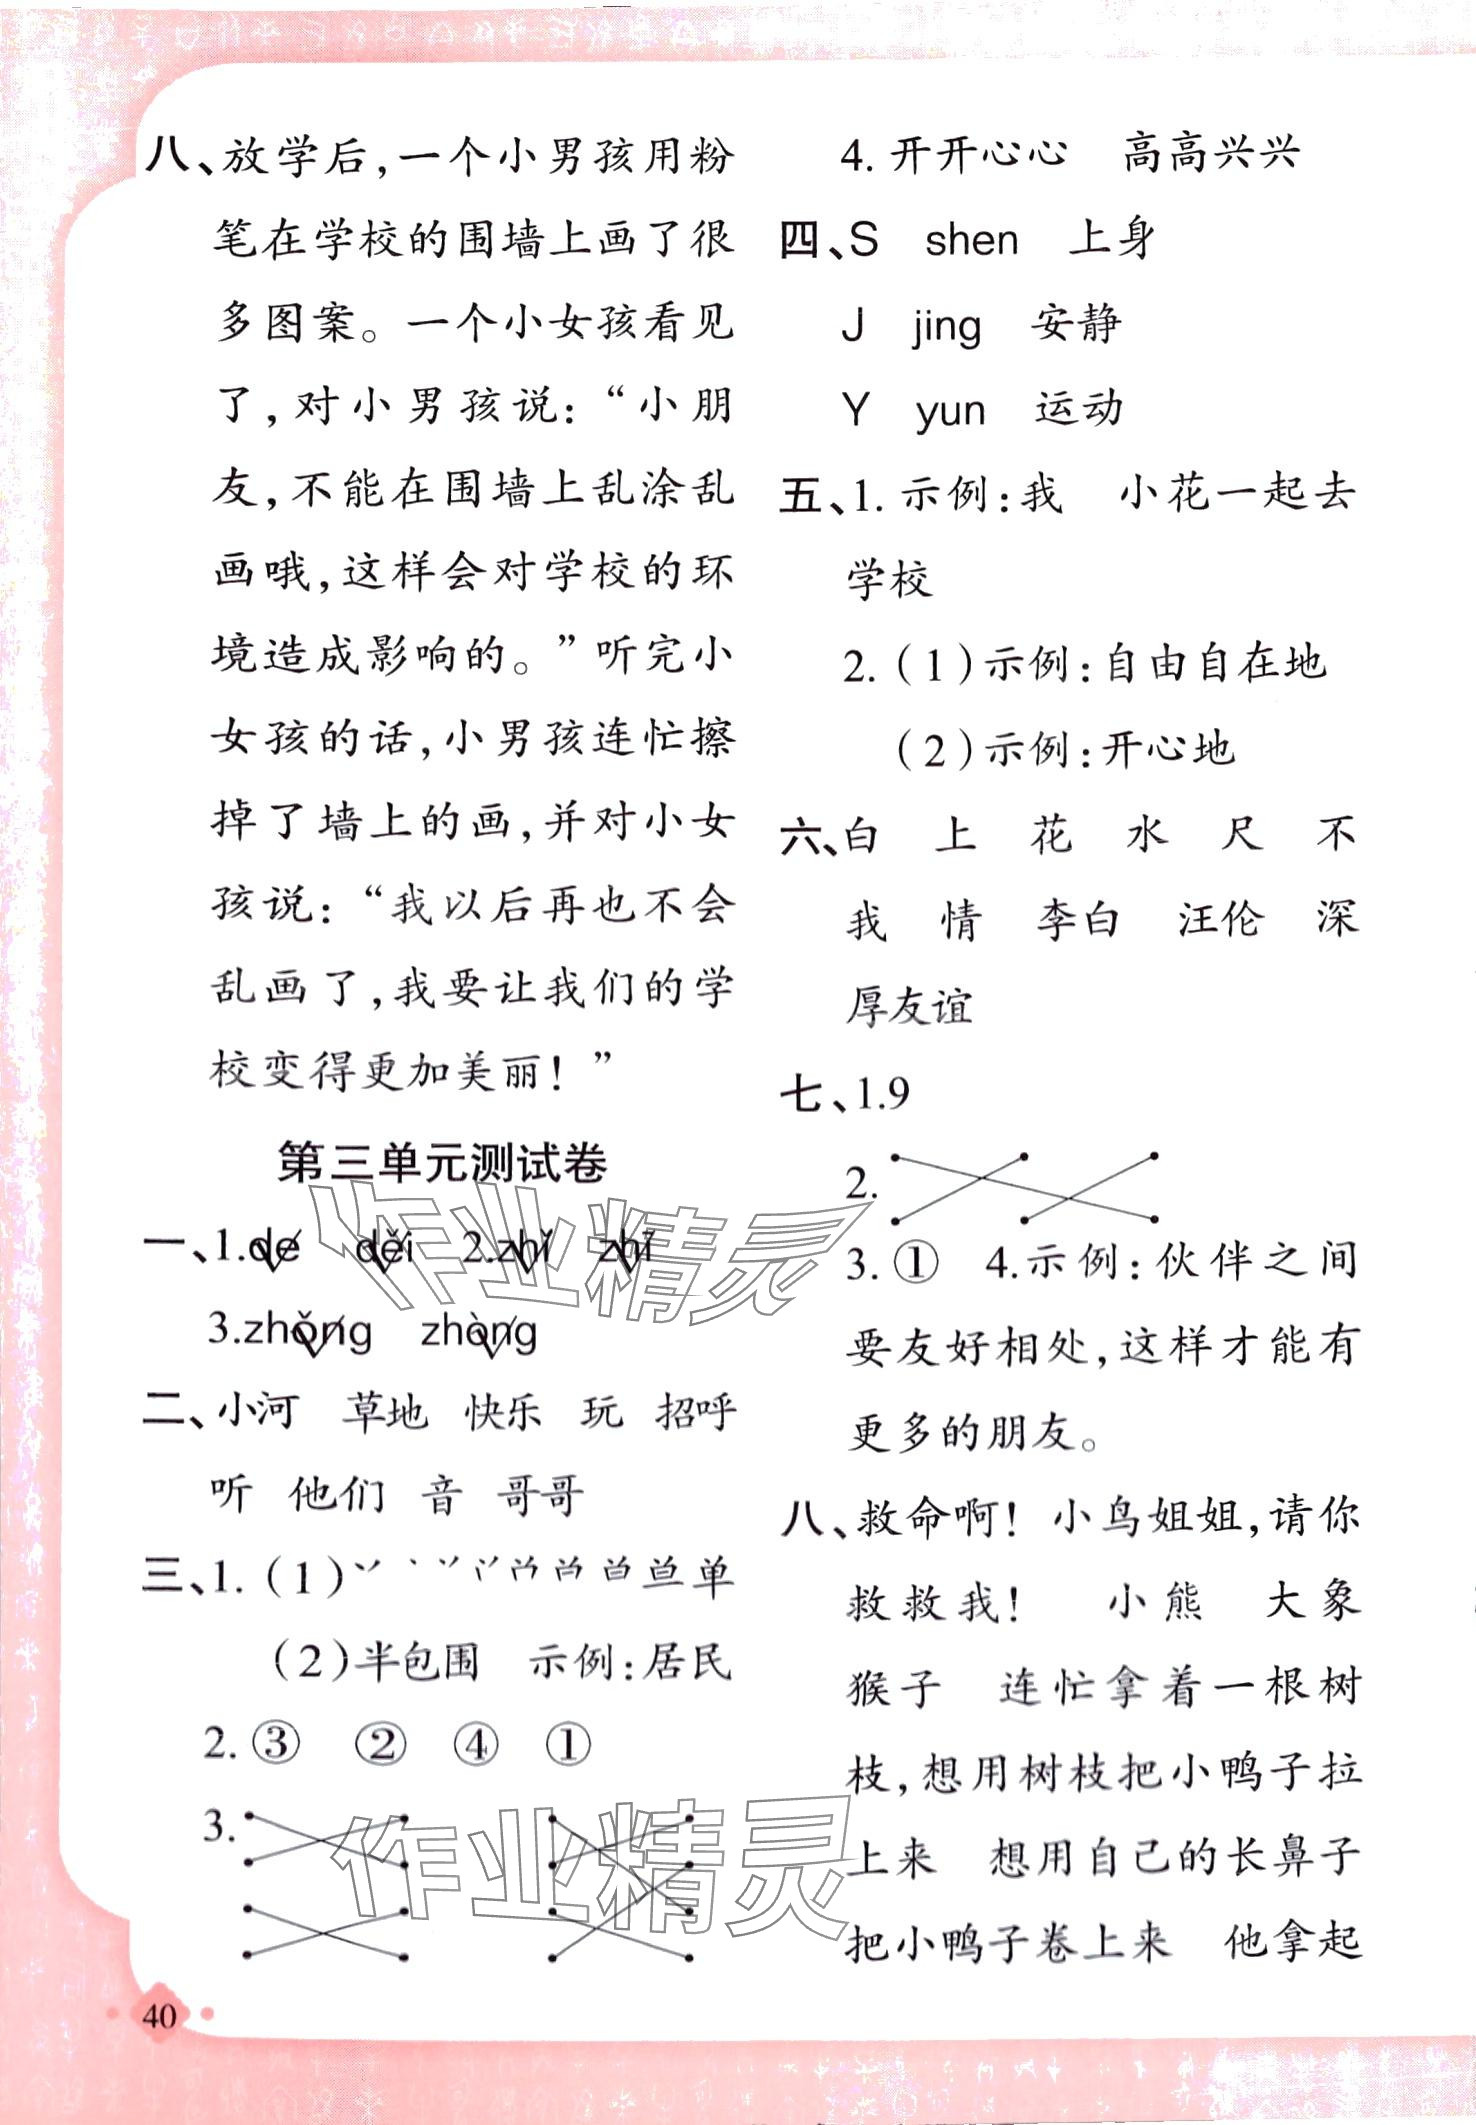 八、放学后，一个小男孩用粉
笔在学校的围墙上画了很
多图案。一个小女孩看见
了，对小男孩说：“小朋
友，不能在围墙上乱涂乱
画哦，这样会对学校的环
境造成影响的。”听完小
女孩的话，小男孩连忙擦
掉了墙上的画，并对小女
孩说：“我以后再也不会
乱画了，我要让我们的学
校变得更加美丽！”
第三单元测试卷
一、1.de děi 2.zhǐ zhī
3.zhǒng zhòng
二、小河 草地 快乐 玩 招呼
听 他们 音 哥哥
三、1.（1）单
（2）半包围 示例：居民
2. ③ ② ④ ①
3.
4. 开开心心 高高兴兴
四、S shen 上身
J jing 安静
Y yun 运动
五、1. 示例：我 小花一起去
学校
2.（1）示例：自由自在地
（2）示例：开心地
六、白 上 花 水 尺 不
我 情 李白 汪伦 深
厚友谊
七、1.9
2.
3. ① 4.示例：伙伴之间
要友好相处，这样才能有
更多的朋友。
八、救命啊！小鸟姐姐，请你
救救我！ 小熊 大象
猴子 连忙拿着一根树
枝，想用树枝把小鸭子拉
上来 想用自己的长鼻子
把小鸭子卷上来 他拿起
40
作业精灵
作业精灵